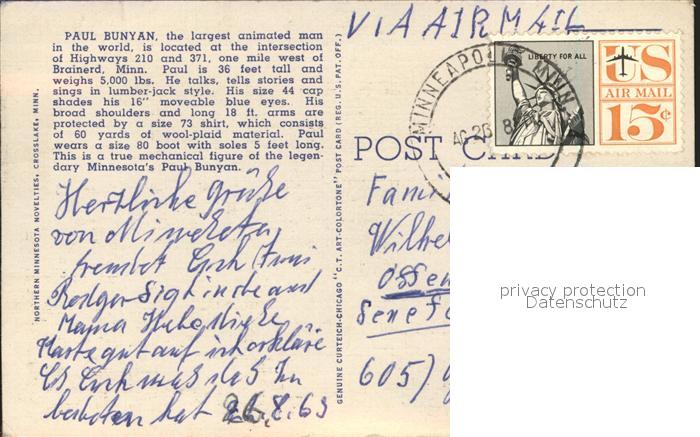 PAUL BUNYAN, the largest animated man
in the world, is located at the intersection
of Highways 210 and 371, one mile west of
Brainerd, Minn. Paul is 36 feet tall and
weighs 5,000 lbs. He talks, tells stories and
sings in lumber-jack style. His size 44 cap
shades his 16" moveable blue eyes. His
broad shoulders and long 18 ft. arms are
protected by a size 73 shirt, which consists
of 60 yards of wool-plaid material. Paul
wears a size 80 boot with soles 5 feet long.
This is a true mechanical figure of the legen-
dary Minnesota's Paul Bunyan.
NORTHERN MINNESOTA NOVELTIES, CROSSLAKE, MINN.
Herzliche Grüße
von
Euch
Rodger
Mama
Karte gut auf ich erkläre
Euch was das zu
hat 26.8.63
GENUINE CURTEICH-CHICAGO "C.T. ART-COLORTONE" POST CARD (REG. U.S. PAT. OFF.)
VIA AIR MAIL
MINNEAPOLIS MINN.
LIBERTY FOR ALL
US
AIR MAIL
15¢
POST CARD
Fam
Wilhe
Ossen
Senef
605)
privacy protection
Datenschutz